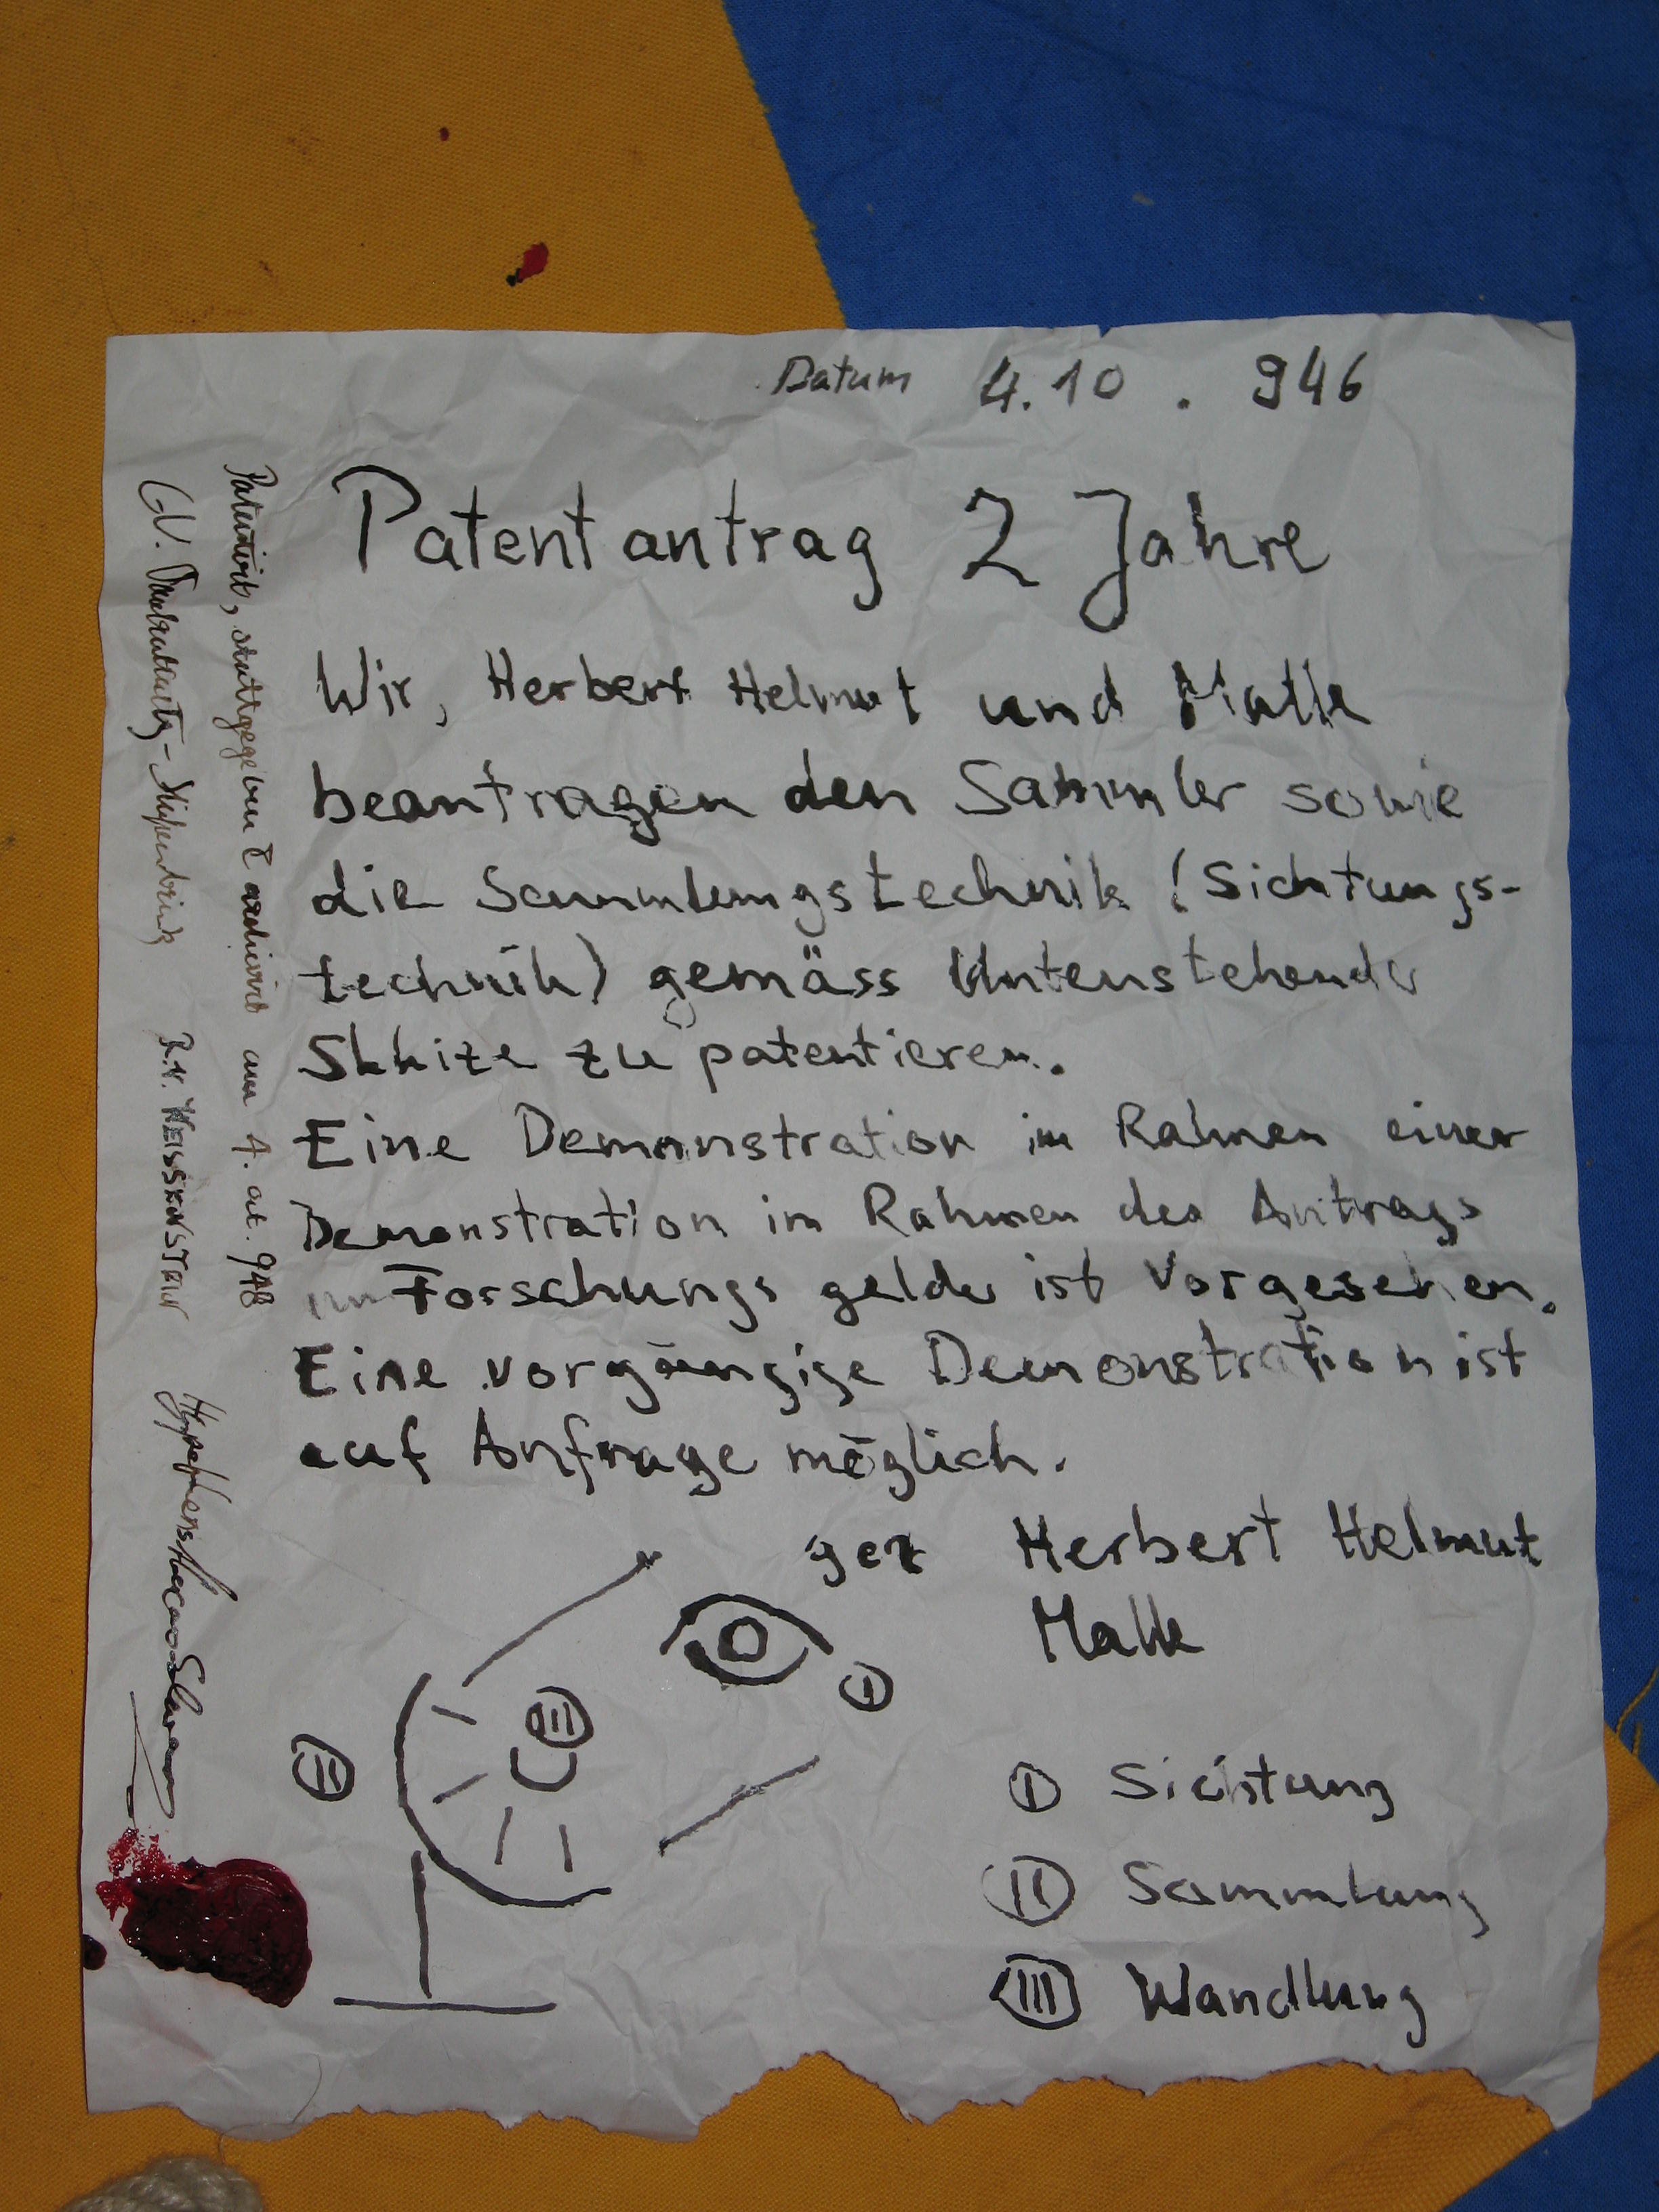 Datum 4.10.946
Patentantrag 2 Jahre
Wir, Herbert Helmut und Malle
beantragen den Sammler sowie
die Sammlungstechnik (Sichtungs-
technik) gemäss Untenstehender
Skkize zu patentieren.
Eine Demonstration im Rahmen einer
Demonstration im Rahmen des Antrags
um Forschungsgelder ist vorgesehen.
Eine vorgängige Demonstration ist
auf Anfrage möglich.
gez Herbert Helmut
Malle
I
II
III
I Sichtung
II Sammlung
III Wandlung
Patentiert, stattgegeben & archiviert am 4. 948
R.N.